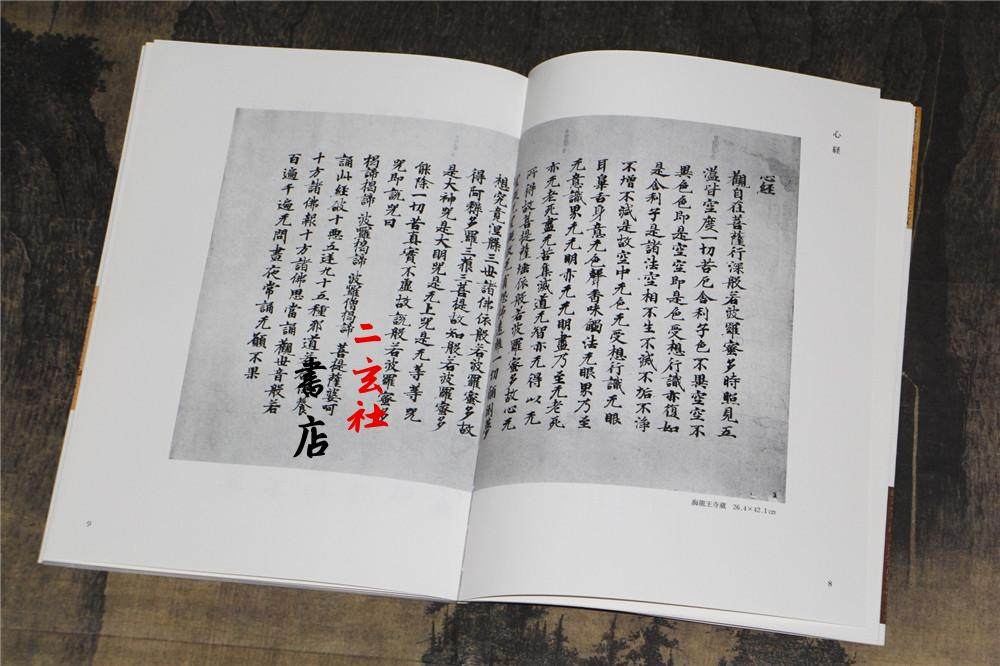 心経
心経
觀自在菩薩行深般若波羅蜜多時照見五
蘊皆空度一切苦厄舍利子色不異空空不
異色色即是空空即是色受想行識亦復如
是舍利子是諸法空相不生不滅不垢不淨
不增不減是故空中无色无受想行識无眼
耳鼻舌身意无色聲香味觸法无眼界乃至
无意識界无无明亦无无明盡乃至无老死
亦无老死盡无苦集滅道无智亦无得以无
所得故菩提薩埵依般若波羅蜜多故心无
一切顛倒夢
想究竟涅槃三世諸佛依般若波羅蜜多故
得阿耨多羅三藐三菩提故知般若波羅蜜多
是大神咒是大明咒是无上咒是无等等咒
能除一切苦真實不虛故說般若波羅蜜多
咒即說咒曰
揭諦揭諦 波羅揭諦 波羅僧揭諦 菩提薩婆可
誦此經破十惡五逆九十五種邪道養
十方諸佛報十方諸佛恩當誦觀世音般若
百遍千遍无問晝夜常誦无願不果
海龍王寺蔵 26.4×42.1cm
8
9
二玄社
書店